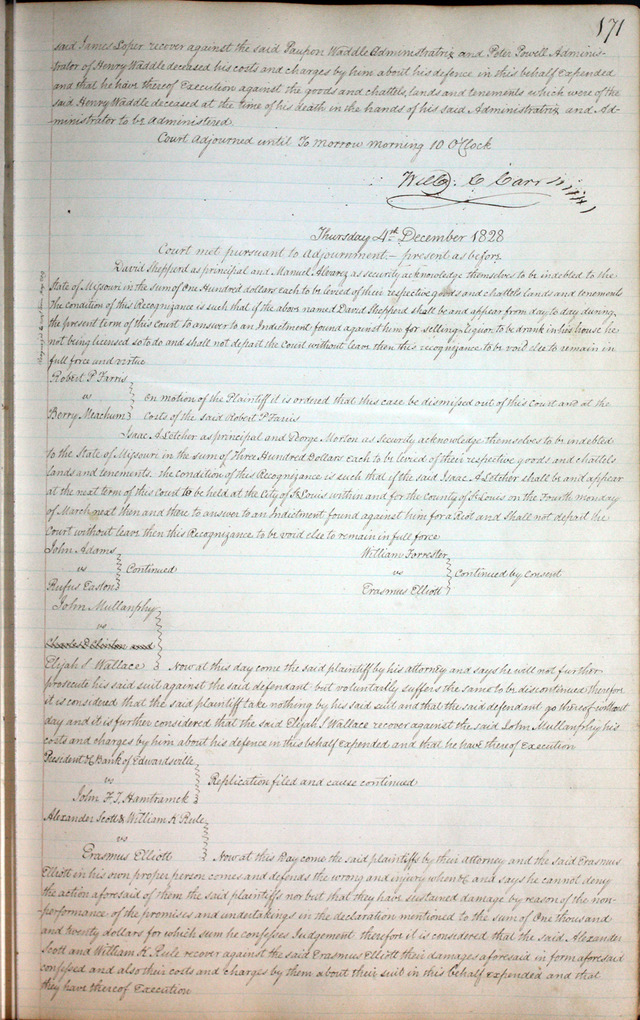 171
said James Loper recover against the said Paupon Waddle Administratrix and Peter Powell Adminis-
trator of Henry Waddle deceased his costs and charges by him about his defence in this behalf Expended
and that he have thereof Execution against the goods and chattels, lands and tenements which were of the
said Henry Waddle deceased at the time of his death in the hands of his said Administratrix and Ad-
ministrator to be administered.
Court Adjourned until To morrow morning 10 O'Clock
Will: C Carr
Thursday 4th December 1828
Court met pursuant to Adjournment — present as before
David Shepperd as principal and Manuel Alvarez as security acknowledge themselves to be indebted to the
State of Missouri in the sum of One Hundred dollars each to be levied of their respective goods and chattels lands and tenements
The condition of this Recognizance is such that if the above named David Shepperd shall be and appear from day to day during
the present term of this Court to answer to an Indictment found against him for selling liquor to be drank in his house he
not being licensed so to do and shall not depart the Court without leave then this recognizance to be void else to remain in
full force and virtue
Robert P Farris
vs
On motion of the Plaintiff it is ordered that this case be dismissed out of this Court and at the
Berry Meachum costs of the said Robert P Farris
Isaac A Letcher as principal and George Morton as Security acknowledge themselves to be indebted
to the State of Missouri in the sum of Three Hundred Dollars each to be levied of their respective goods and chattels
lands and tenements. The condition of this Recognizance is such that if the said Isaac A Letcher shall be and appear
at the next term of this Court to be held at the City of St Louis within and for the County of St Louis on the Fourth monday
of March next then and there to answer to an Indictment found against him for a Riot and Shall not depart the
Court without leave then this Recognizance to be void else to remain in full force
John Adams
vs Continued
Rufus Easton
William Forrester
vs Continued by Consent
Erasmus Elliott
John Mullanphy
vs
Charles D Linton and
Elijah S Wallace Now at this day come the said plaintiff by his attorney and says he will not further
prosecute his said suit against the said defendant but voluntarily suffers the same to be discontinued therefore
it is considered that the said plaintiff take nothing by his said suit and that the said defendant go thereof without
day and it is further considered that the said Elijah S Wallace recover against the said John Mullanphy his
costs and charges by him about his defence in this behalf expended and that he have thereof Execution
President &c Bank of Edwardsville
vs Replication filed and cause continued
John F. J. Hamtramck
Alexander Scott & William K Rule
vs
Erasmus Elliott Now at this Day come the said plaintiffs by their attorney and the said Erasmus
Elliott in his own proper person comes and defends the wrong and injury when &c and says he cannot deny
the action aforesaid of them the said plaintiffs nor but that they have sustained damage by reason of the non-
-performance of the promises and undertakings in the declaration mentioned to the sum of One thousand
and twenty dollars for which sum he confesses Judgement therefore it is considered that the said Alexander
Scott and William K. Rule recover against the said Erasmus Elliott their damages aforesaid in form aforesaid
confessed and also their costs and charges by them about their suit in this behalf expended and that
they have thereof Execution